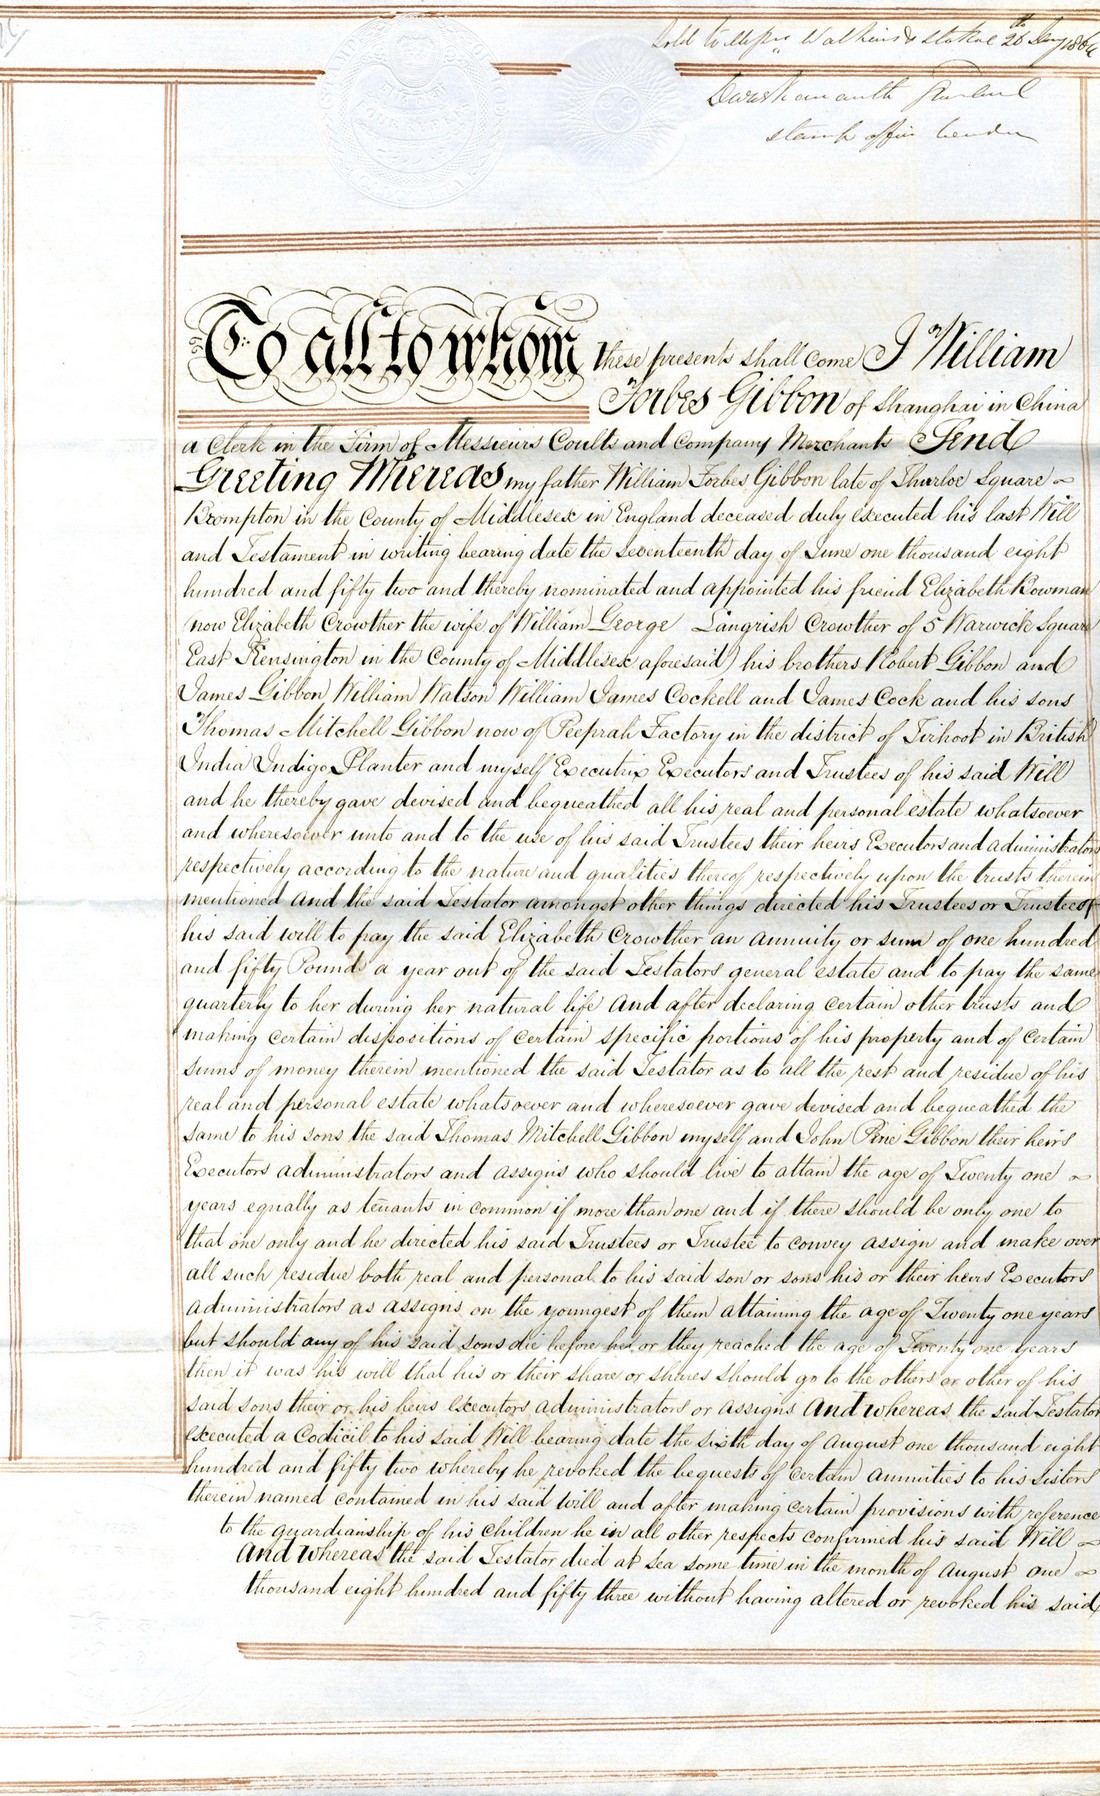 Sold to Messrs Watkins & Stokoe 26th Jany 186
stamp office vendor
To all to whom these presents shall come I William
Forbes Gibbon of Shanghai in China
a Clerk in the Firm of Messieurs Coults and Company Merchants Send
Greeting Whereas my father William Forbes Gibbon late of Thurloe Square
Brompton in the County of Middlesex in England deceased duly executed his last Will
and Testament in writing bearing date the seventeenth day of June one thousand eight
hundred and fifty two and thereby nominated and appointed his friend Elizabeth Bowman
(now Elizabeth Crowther the wife of William George Langrish Crowther of 5 Warwick Square
East Kensington in the County of Middlesex aforesaid) his brothers Robert Gibbon and
James Gibbon William Watson William James Cockell and James Cock and his sons
Thomas Mitchell Gibbon now of Peeprah Factory in the district of Tirhoot in British
India Indigo Planter and myself Executrix Executors and Trustees of his said Will
and he thereby gave devised and bequeathed all his real and personal estate whatsoever
and wheresoever unto and to the use of his said Trustees their heirs Executors and administrators
respectively according to the nature and qualities thereof respectively upon the trusts therein
mentioned And the said Testator amongst other things directed his Trustees or Trustee of
his said will to pay the said Elizabeth Crowther an annuity or sum of one hundred
and fifty Pounds a year out of the said Testators general estate and to pay the same
quarterly to her during her natural life And after declaring certain other trusts and
making certain dispositions of certain specific portions of his property and of certain
sums of money therein mentioned the said Testator as to all the rest and residue of his
real and personal estate whatsoever and wheresoever gave devised and bequeathed the
same to his sons the said Thomas Mitchell Gibbon myself and John Pine Gibbon their heirs
Executors administrators and assigns who should live to attain the age of Twenty one
years equally as tenants in common if more than one and if there should be only one to
that one only and he directed his said Trustees or Trustee to convey assign and make over
all such residue both real and personal to his said son or sons his or their heirs Executors
administrators as assigns on the youngest of them attaining the age of Twenty one years
but should any of his said sons die before he or they reached the age of Twenty one years
then it was his will that his or their share or shares should go to the others or other of his
said sons their or his heirs executors administrators or assigns And whereas the said Testator
executed a Codicil to his said Will bearing date the sixth day of August one thousand eight
hundred and fifty two whereby he revoked the bequests of certain annuities to his Sisters
therein named contained in his said will and after making certain provisions with reference
to the guardianship of his children he in all other respects confirmed his said Will
And Whereas the said Testator died at sea some time in the month of August one
thousand eight hundred and fifty three without having altered or revoked his said